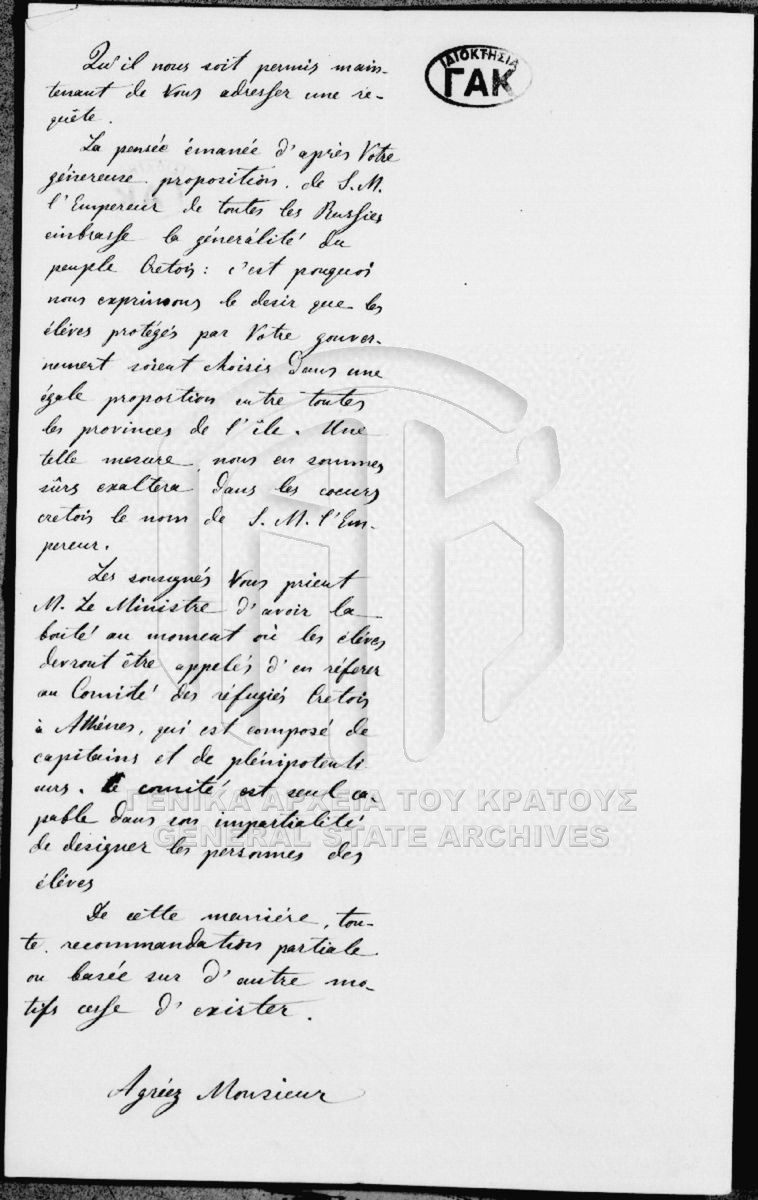 ΙΔΙΟΚΤΗΣΙΑ
ΓΑΚ
Qu'il nous soit permis main-
tenant de Vous adresser une re-
quête.
La pensée émanée d'après Votre
génereuse proposition. de S. M.
l'Empereur de toutes les Russies
embrasse la géneralité du
peuple Cretois: c'est pouquoi
nous exprimons le desir que les
éléves protégés par Votre gouver-
nement soient choisis dans une
égale proportion entre toutes
les provinces de l'île. Une
telle mesure, nous en sommes
sûrs exaltera dans les coeurs
cretois le nom de S. M. l'Em-
pereur.
Les sousignés Vous prient
M. Le Ministre d'avoir la
bonté au moment où les éléves
devront être appelés d'en réferer
au Comité des réfugiés Cretois
à Athènes, qui est composé de
capitains et de plénipotenti
aires. Le comité est seul ca-
pable dans son impartialité
de designer les personnes des
éléves
De cette maniére, tou-
te recommandation partiale
ou basée sur d'autre mo-
tifs cesse d'exister.
Agréez Monsieur
ΓΕΝΙΚΑ ΑΡΧΕΙΑ ΤΟΥ ΚΡΑΤΟΥΣ
GENERAL STATE ARCHIVES